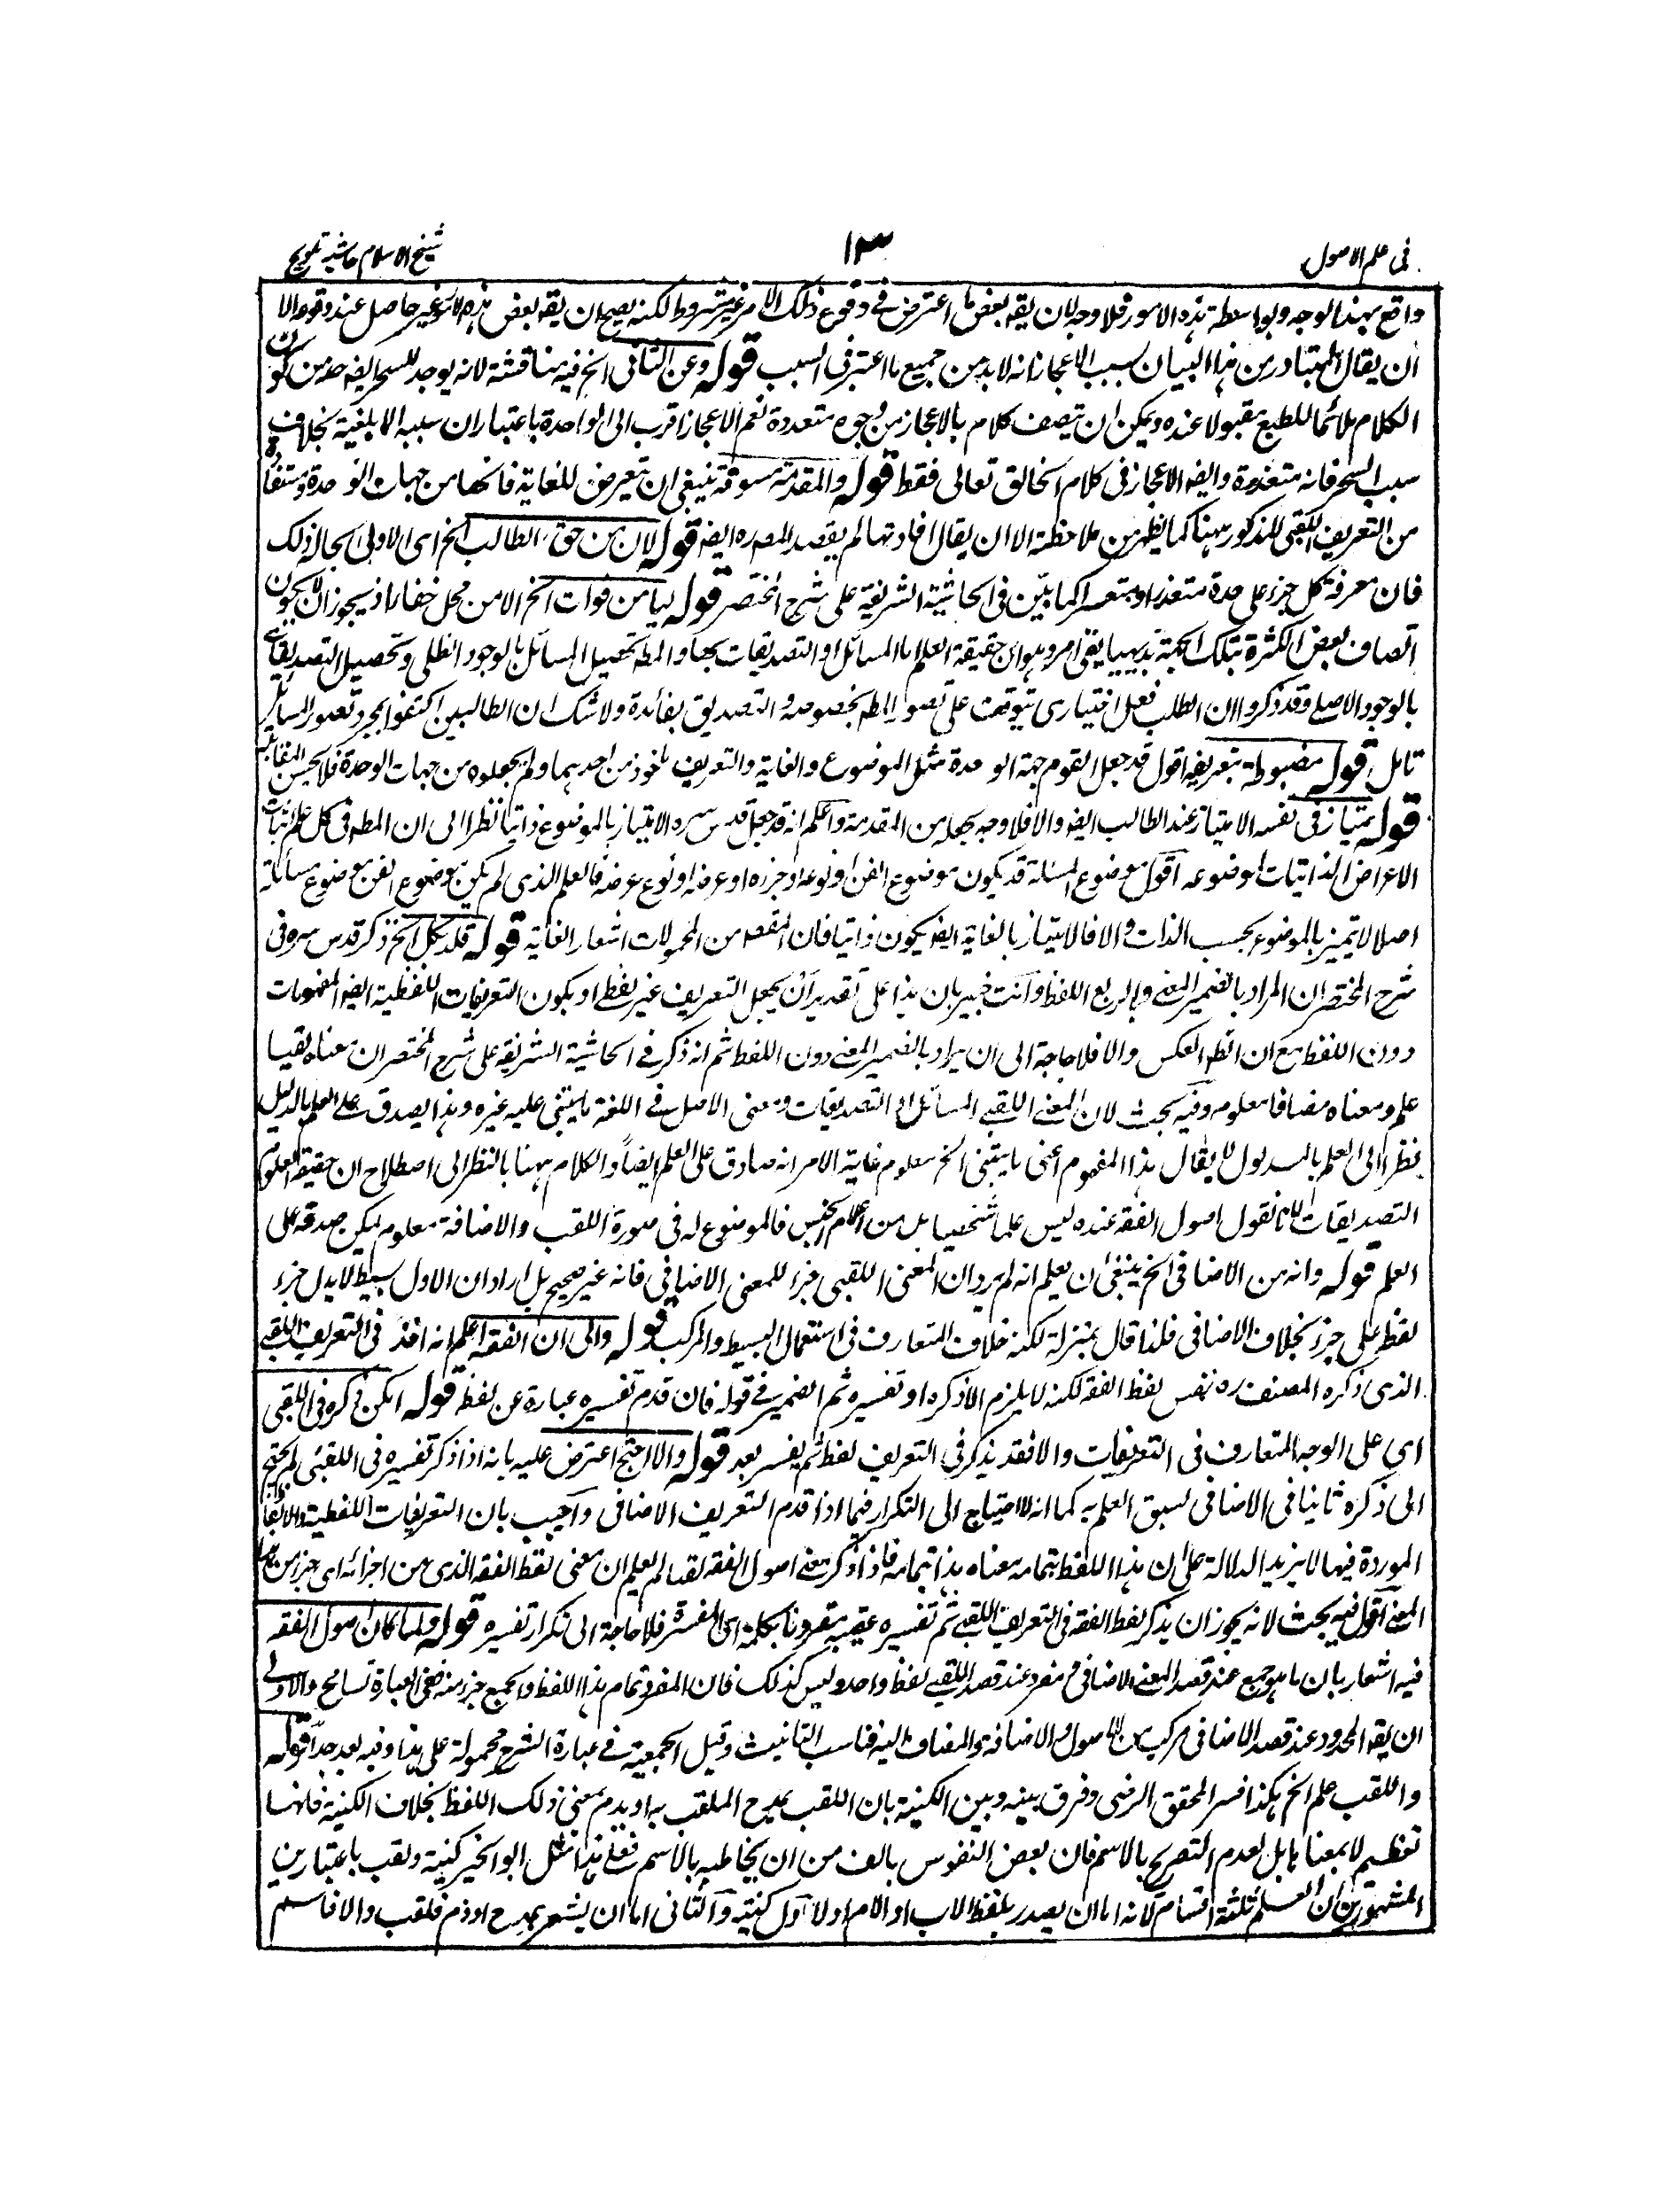 في علم الاصول
١٣
شيخ الاسلام حاشية تلويح
واقع بهذا الوجه وبواسطة هذه الامور فلا وجه لان يقه بعض ما اعترض في وقوع ذلك الامر غير مشروط لكنه يصح ان يقه بعض هذه الامور غير حاصل عند وقوعه الا
ان يقال المتبادر من هذا البيان لسبب الاعجاز انه لابد من جميع ما اعتبر في السبب قوله وعن الثاني الخ فيه مناقشة لانه يوجد للسحر ايضه حد من كون
الكلام ملائما للطبع مقبولا عنده ويمكن ان يتصف كلام بالاعجاز من وجوه متعددة نعم الاعجاز اقرب الى الواحدة باعتبار ان سببه الابلغية بخلاف
سبب السحر فانه متعددة وايضه الاعجاز في كلام الخالق تعالى فقط قوله والمقدمة مسوقة ينبغي ان يتعرض للغاية فانها من جهات الوحدة
من التعريف اللقبي المذكور ههنا كما يظهر من ملاحظة الا ان يقال افادتها لم يقصد المصره ايضه قوله لان من حق الطالب الخ اي الاولى بحاله ذلك
فان معرفة كل جزء على حدة متعذر او متعسر كما بيّن في الحاشية الشريفية على شرح المختصر قوله ليامن فوات الخ الامن محل خفاء اذ يجوز ان لا يكون
اتصاف بعض الكثرة بتلك الجهة بديهيا بقي امر وهو ان حقيقة العلم اما المسائل او التصديقات بها والمطه تحصيل المسائل بالوجود الظلي وتحصيل التصديقات
بالوجود الاصلي وقد ذكروا ان الطلب فعل اختياري يتوقف على تصور المطه بخصوصه والتصديق بفائدة ولا شك ان الطالبين اكتفوا بمجرد تصور المسائل
تامل قوله مضبوطة بتعريفه اقول قد جعل القوم جهة الوحدة مثل الموضوع والغاية والتعريف ماخوذ من احدهما ولم يجعلوه من جهات الوحدة فلا يحسن المقابلة
قوله يمتاز في نفسه الامتياز عند الطالب ايضه والا فلا وجه بجعله من المقدمة واعلم انه قد جعل قدس سره الامتياز بالموضوع ذاتيا نظرا الى ان المطه في كل علم اثبات
الاعراض الذاتيات لموضوعه اقول موضوع المسئلة قد يكون موضوع الفن او نوعه او جزءه او عرضه او نوع عرضه فالعلم الذي لم يكن موضوع الفن موضوع مسألة
اصلا لا يتميز بالموضوع بحسب الذات والا فالامتياز بالغاية ايضه يكون ذاتيا فان المقصد من المحمولات اشعار الغاية قوله فلكل الخ ذكر قدس سره في
شرح المختصر ان المراد بالضمير المعنى وبالمرجع اللفظ وانت خبير بان هذا على تقدير ان يجعل التعريف غير لفظ او يكون التعريفات اللفظية ايضه المفهومات
دون اللفظ مع ان الظه العكس والا فلا حاجة الى ان يراد بالضمير المعنى دون اللفظ ثم انه ذكر في الحاشية الشريفة على شرح المختصر ان معناه لقبا
علم ومعناه مضافا معلومه وفيه بحث لان المعنى اللقبي المسائل او التصديقات ومعنى الاصل في اللغة ما يبتني عليه غيره وهذا يصدق على العلم بالدليل
نظرا الى العلم بالمدلول لا يقال هذا المفهوم اعني ما يبتني الخ معلوم غاية الامر انه صادق على العلم ايضاً والكلام ههنا بالنظر الى اصطلاح ان حقيقة العلوم
التصديقات لانا نقول اصول الفقه عنده ليس علما شخصيا بل من اعلام الجنس فالموضوع له في صورة اللقب والاضافة معلوم يمكن صدقه على
العلم قوله وانه من الاضافي الخ ينبغي ان يعلم انه لم يرد ان المعنى اللقبي جزء للمعنى الاضافي فانه غير صحيح بل اراد ان الاول بسيط لا يدل جزء
لفظ على جزئه بخلاف الاضافي فلذا قال بمنزلة لكنه خلاف المتعارف في استعمال البسيط والمركب قوله والى ان الفقه اعلم انه اخذ في التعريف اللقبي
الذي ذكره المصنف ره نفس لفظ الفقه لكنه لا يلزم الا ذكره او تفسيره ثم الضمير في قوله فان قدم تفسيره عبارة عن لفظ قوله امكن ذكره في اللقبي
اي على الوجه المتعارف في التعريفات والا فقد يذكر في التعريف لفظ ثم يفسر بعد قوله والا احتج اعترض عليه بانه اذا ذكر تفسيره في اللقبي لم يحتج
الى ذكره ثانيا في الاضافي لسبق العلم به كما انه لا احتياج الى التكرار فيما اذا قدم التعريف الاضافي واجيب بان التعريفات اللفظية والالفاظ
الموردة فيها لا يزيد الدلالة على ان هذا اللفظ بتمامه معناه هذا بتمامه فاذا ذكر معنى اصول الفقه لقبا لم يعلم ان معنى لفظ الفقه الذي هو من اجزائه اي جزء من هذا
المعنى اقول فيه بحث لانه يجوز ان يذكر لفظ الفقه في التعريف اللقبي ثم تفسيره عقيبه مقرونا بكلمة اي المفسرة فلا حاجة الى تكرار تفسيره قوله ولما كان اصول الفقه
فيه اشعار بان ما هو جمع عند قصد المعنى الاضافي مفرد عند قصد اللقبي لفظ واحد وليس كذلك فان المفرد تمام هذا اللفظ والجمع جزء منه ففي العبارة تسامح والاولى
ان يقه المحدود عند قصد الاضافي مركب من الاصول والاضافة والمضاف اليه فناسب التانيث وقيل الجمعية في عبارة الشرح محمولة على هذا وفيه بعد جداً قوله
واللقب علم الخ هكذا فسر المحقق الرضي وفرق بينه وبين الكنية بان اللقب يمدح الملقب به او يذم بمعنى ذلك اللفظ بخلاف الكنية فانها
تعظيم لا بمعناها بل لعدم التصريح بالاسم فان بعض النفوس يانف من ان يخاطبه بالاسم فعلى هذا مثل ابو الخير كنية ولقب باعتبارين
المشهور من ان العلم ثلثة اقسام لانه اما ان يصدر بلفظ الاب او الام او لا الاول كنية والثاني اما ان يشعر بمدح او ذم فلقب والا فاسم